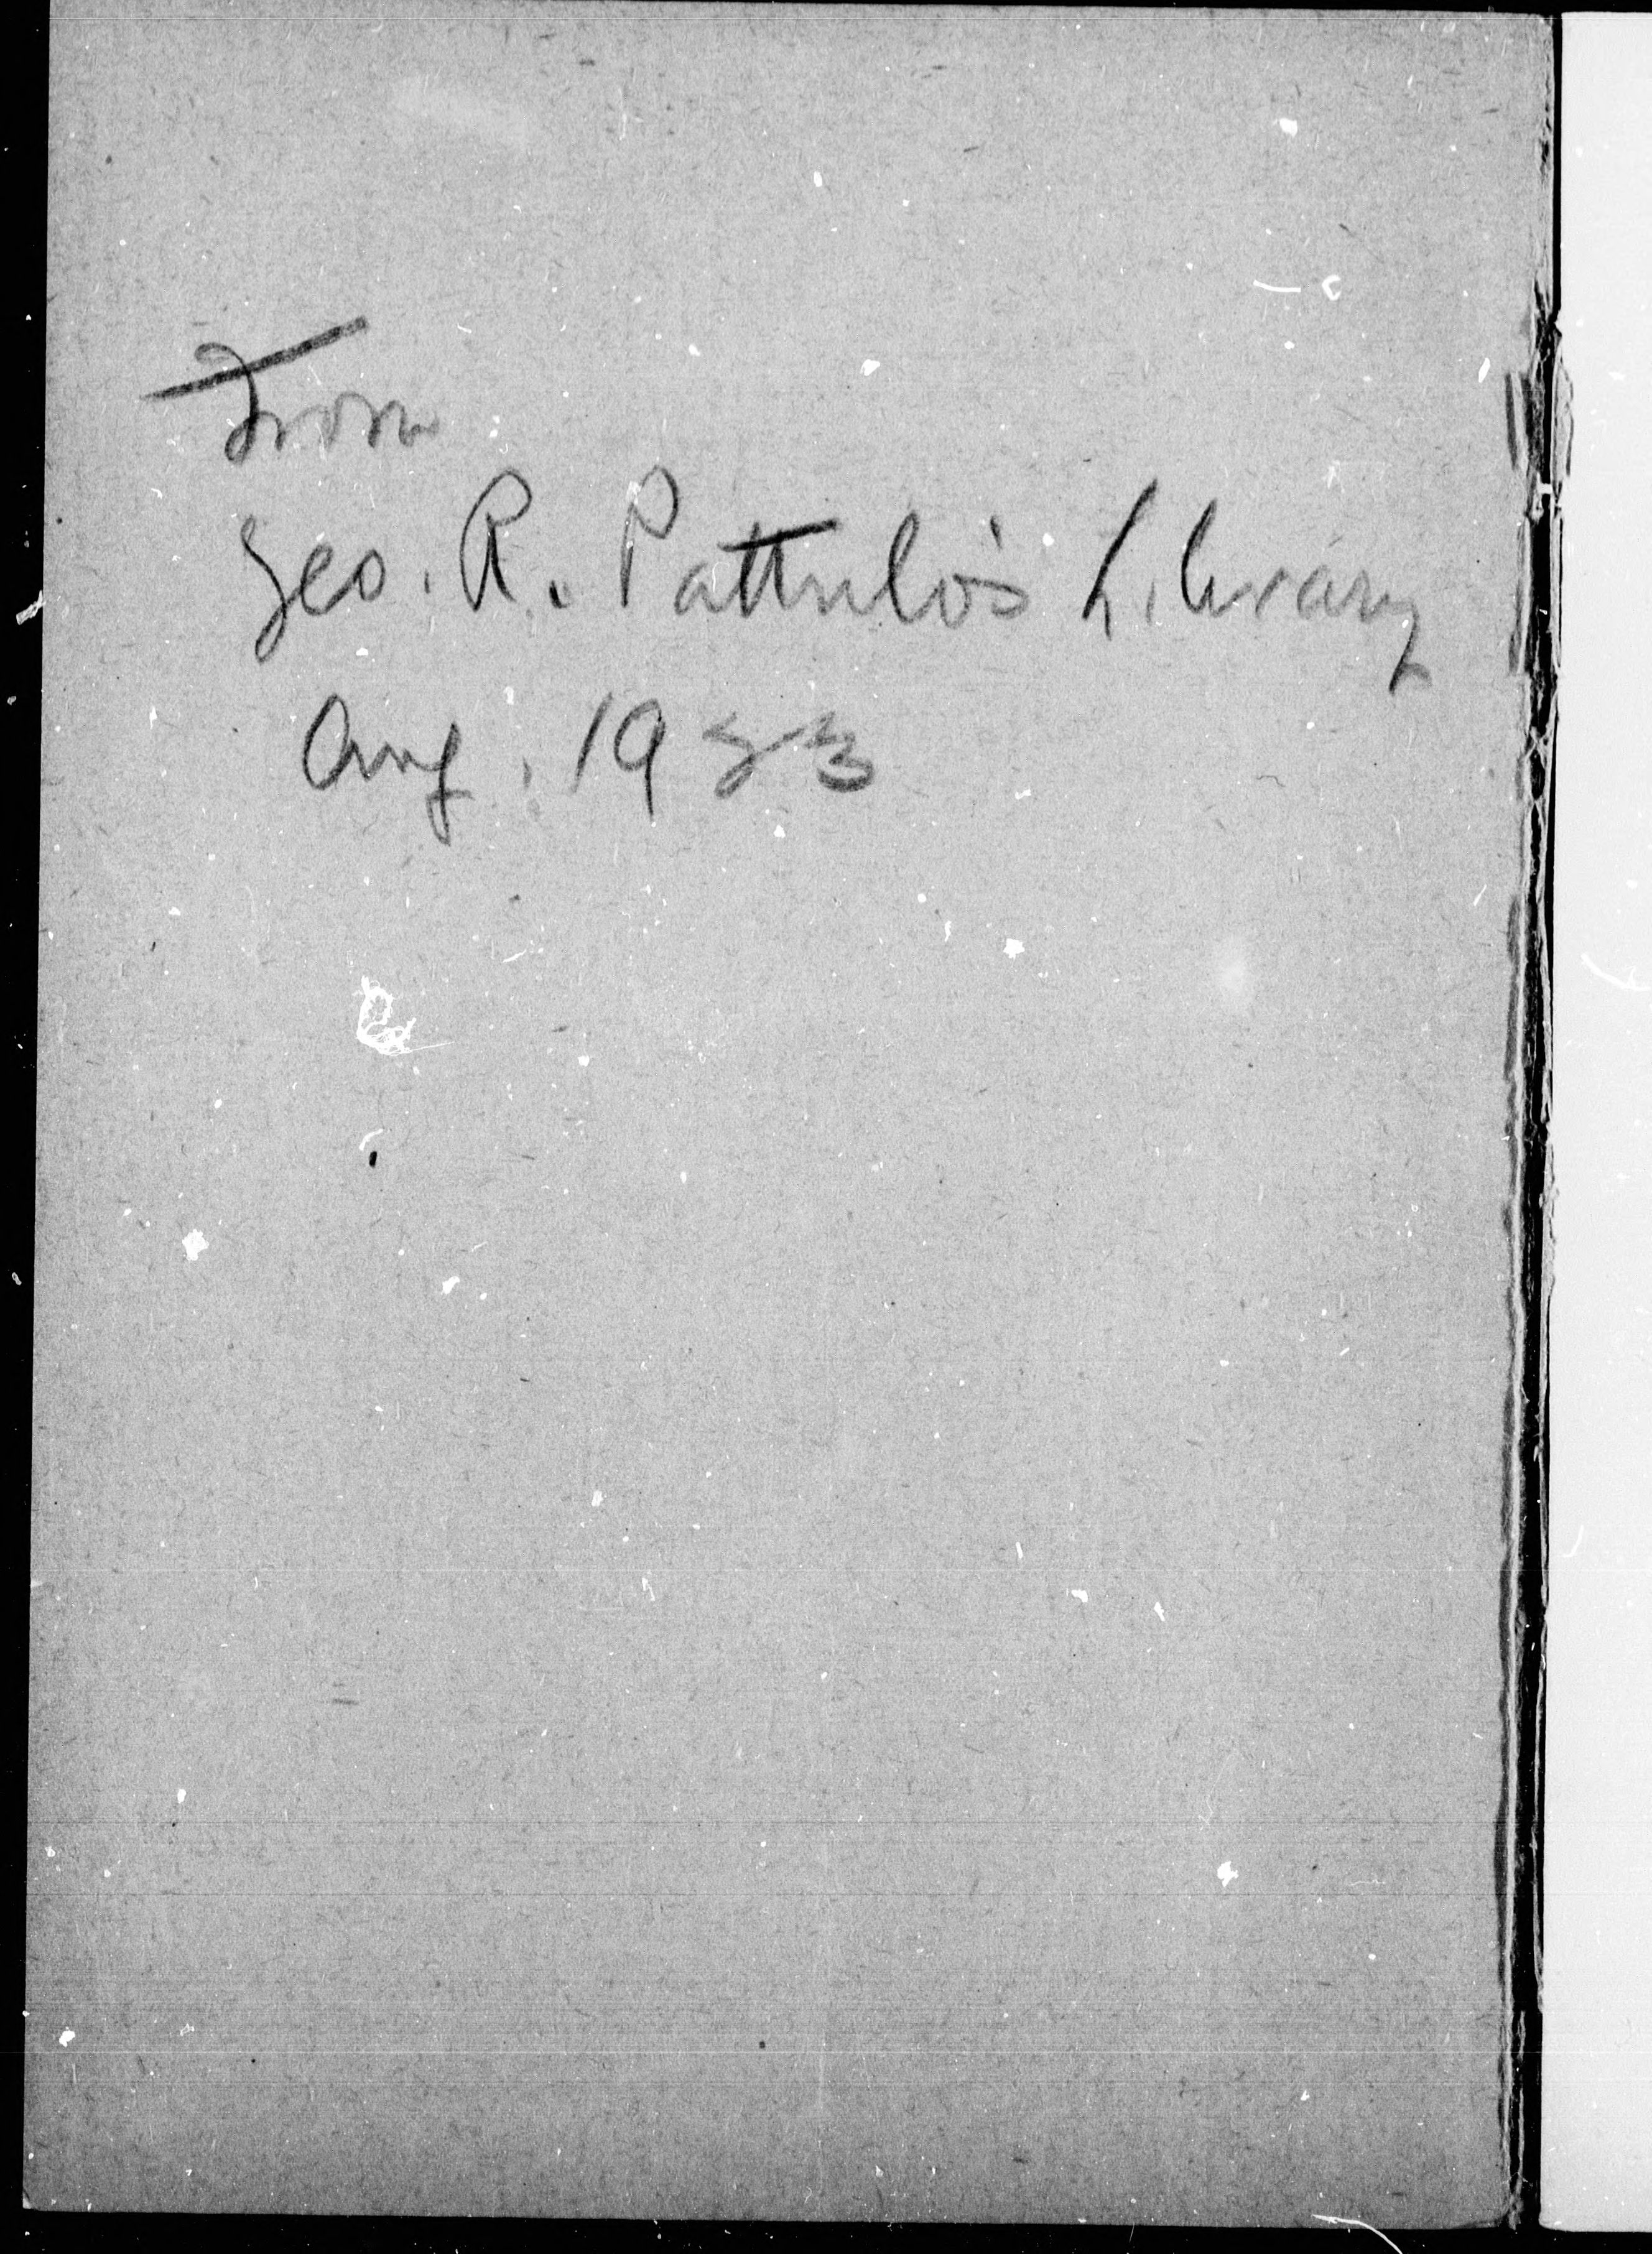 From
Geo. R. Pattulo's Library
Aug. 1923